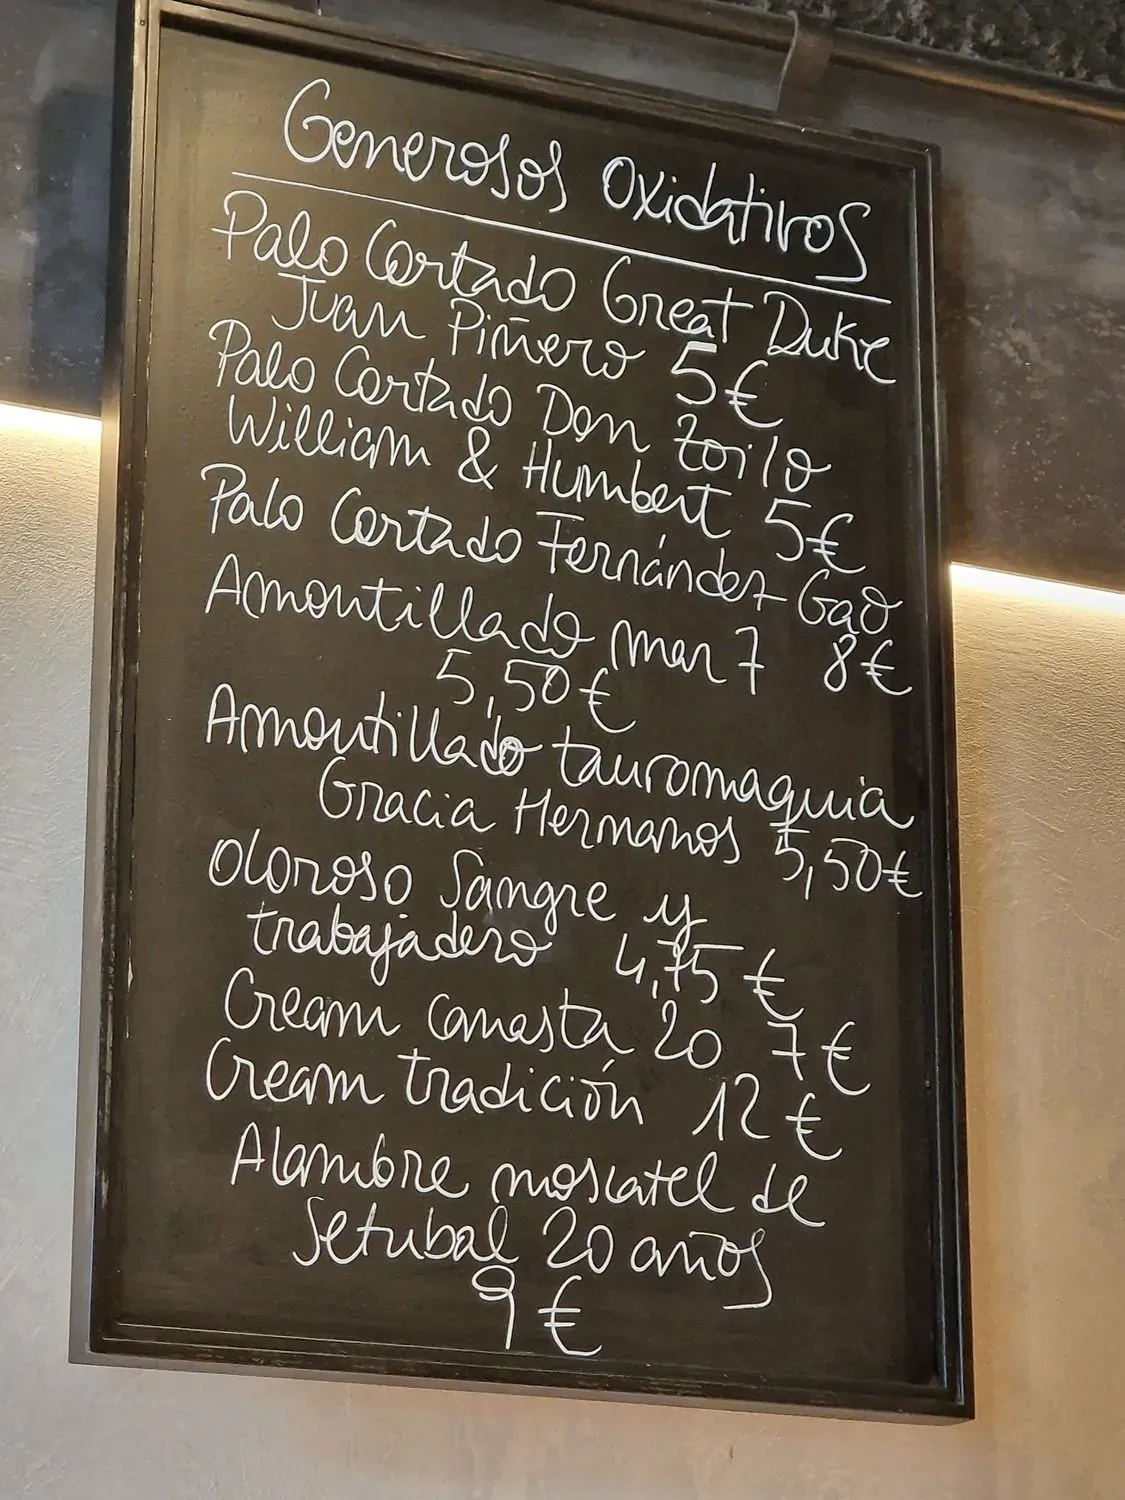 Generosos Oxidativos
Palo Cortado Great Duke
Juan Piñero 5€
Palo Cortado Don Zoilo
William & Humbert 5€
Palo Cortado Fernández Gao
Amontillado mar 7 8€
5,50€
Amontillado tauromaquia
Gracia Hermanos 5,50€
Oloroso Sangre y
trabajadero 4,75€
Cream canasta 20 7€
Cream tradición 12€
Alambre moscatel de
Setubal 20 años
9€